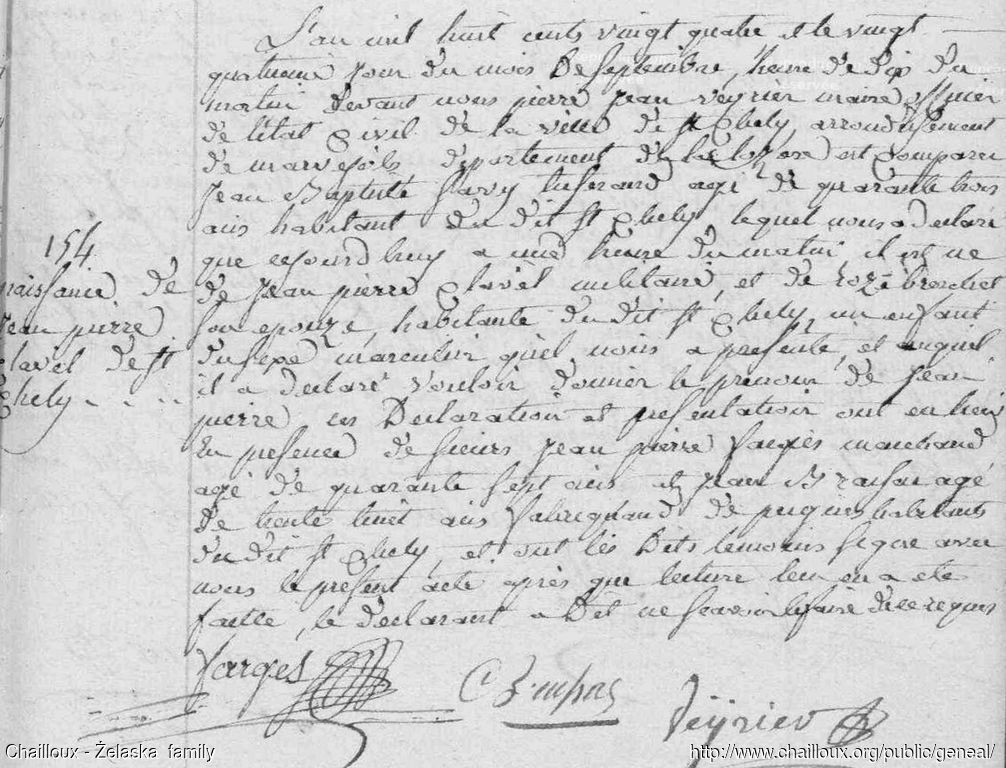 L'an mil huit cents vingt quatre et le vingt
quatrieme jour du mois De septembre, heure De Dix Du
matin Devant nous pierre Jean veyrier maire officier
De l'état Civil De la ville De St Chely, arrondissement
De marvejols Departement De la lozere est Comparu
Jean Baptiste Savy tisserand agé De quarante trois
ans habitant Du Dit St Chely lequel nous a Declaré
que cejourdhuy a une heure Du matin, il est ne
De Jean pierre Clavel militaire, et De roze
son epouze, habitante Du Dit St Chely, un enfant
Du sexe masculin quil nous a presenté, et auquel
il a Declaré vouloir Donner le prenom De Jean
pierre ces Declaration et presentation ont eu lieu
En presence De sieurs Jean pierre Varges marchand
agé De quarante sept ans et Jean B agé
De trente huit ans De habitants
Du Dit St Chely, et ont les Dits temoins signe avec
nous le present acte après que lecture leur en a ete
faitte, le Declarant a Dit ne scavoir le faire De ce requis
154
naissance De
Jean pierre
Clavel De St
Chely
Varges
Veyrier
Chailloux - Želaska family
http://www.chailloux.org/public/geneal/